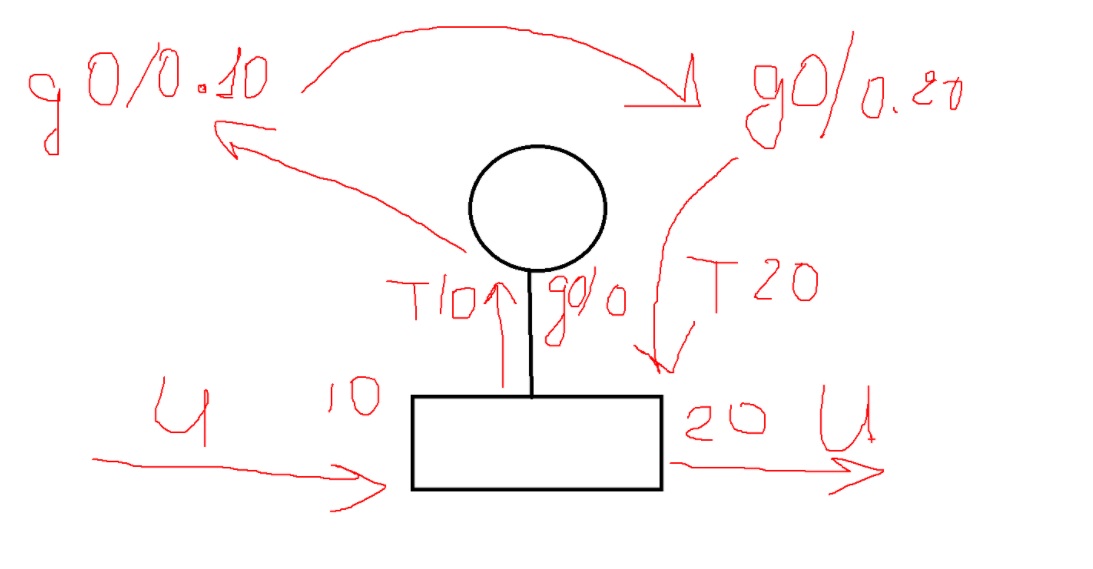 g0/0.10
g0/0.20
T10
g0/0
T20
U
10
20
U